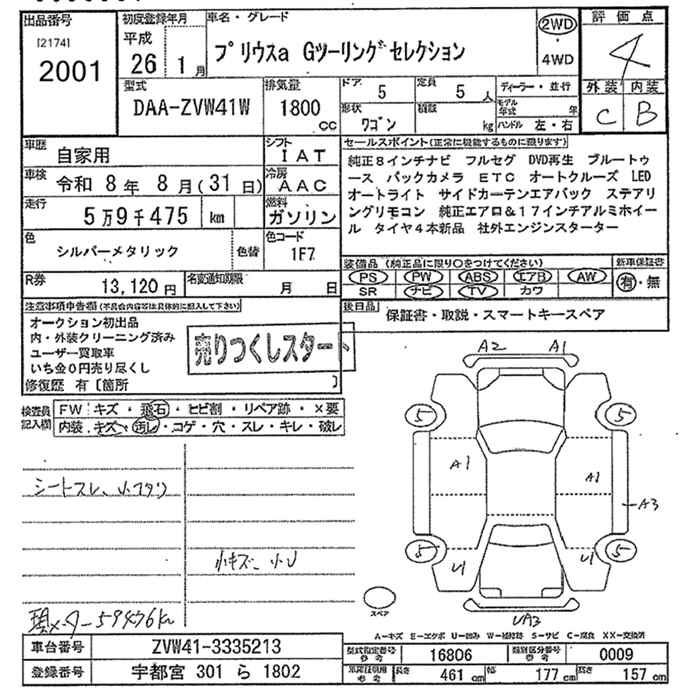 出品番号
[2174]
2001
初度登録年月
平成
26 1月
車名・グレード
プリウスa Gツーリングセレクション
2WD
・
4WD
評価点
4
外装 内装
C B
型式
DAA-ZVW41W
排気量
1800
CC
ドア
5
定員
5人
形状
ワゴン
積載
kg
ディーラー・並行
モデル年式 年
ハンドル 左・右
車歴
自家用
シフト
IAT
車検
令和 8年 8月(31日)
冷房
AAC
走行
5万9千475 km
燃料
ガソリン
色
シルバーメタリック
色替
色コード
1F7
R券
13,120円
名変通知期限
月 日
セールスポイント(正常に機能するものに限ります)
純正8インチナビ フルセグ DVD再生 ブルートゥ
ース バックカメラ ETC オートクルーズ LED
オートライト サイドカーテンエアバック ステアリ
ングリモコン 純正エアロ&17インチアルミホイー
ル タイヤ4本新品 社外エンジンスターター
装備品(純正品に限り○をつけてください)
PS PW ABS エアB AW
SR ナビ TV カワ
新車保証書
有・無
後日品
保証書・取説・スマートキースペア
注意事項申告欄(不具合内容等は具体的に記入して下さい)
オークション初出品
内・外装クリーニング済み
ユーザー買取車
いち金0円売り尽くし
修復歴 有〔箇所 〕
売りつくしスタート
検査員
記入欄
FW キズ・飛石・ヒビ割・リペア跡・×要
内装 キズ・汚し・コゲ・穴・スレ・キレ・破レ
シートスレ、小フタリ
小キズ、小U
メーター59476km
A2 A1
5 5
A1 A1
A3
5 5
U1 U1
UA3
スペア
A-キズ E-エクボ U-凹み W-補修跡 S-サビ C-腐食 XX-交換済
車台番号
ZVW41-3335213
登録番号
宇都宮 301 ら 1802
型式指定番号
参考
16806
類別区分番号
参考
0009
参考
長さ
461 cm
幅
177 cm
高さ
157 cm